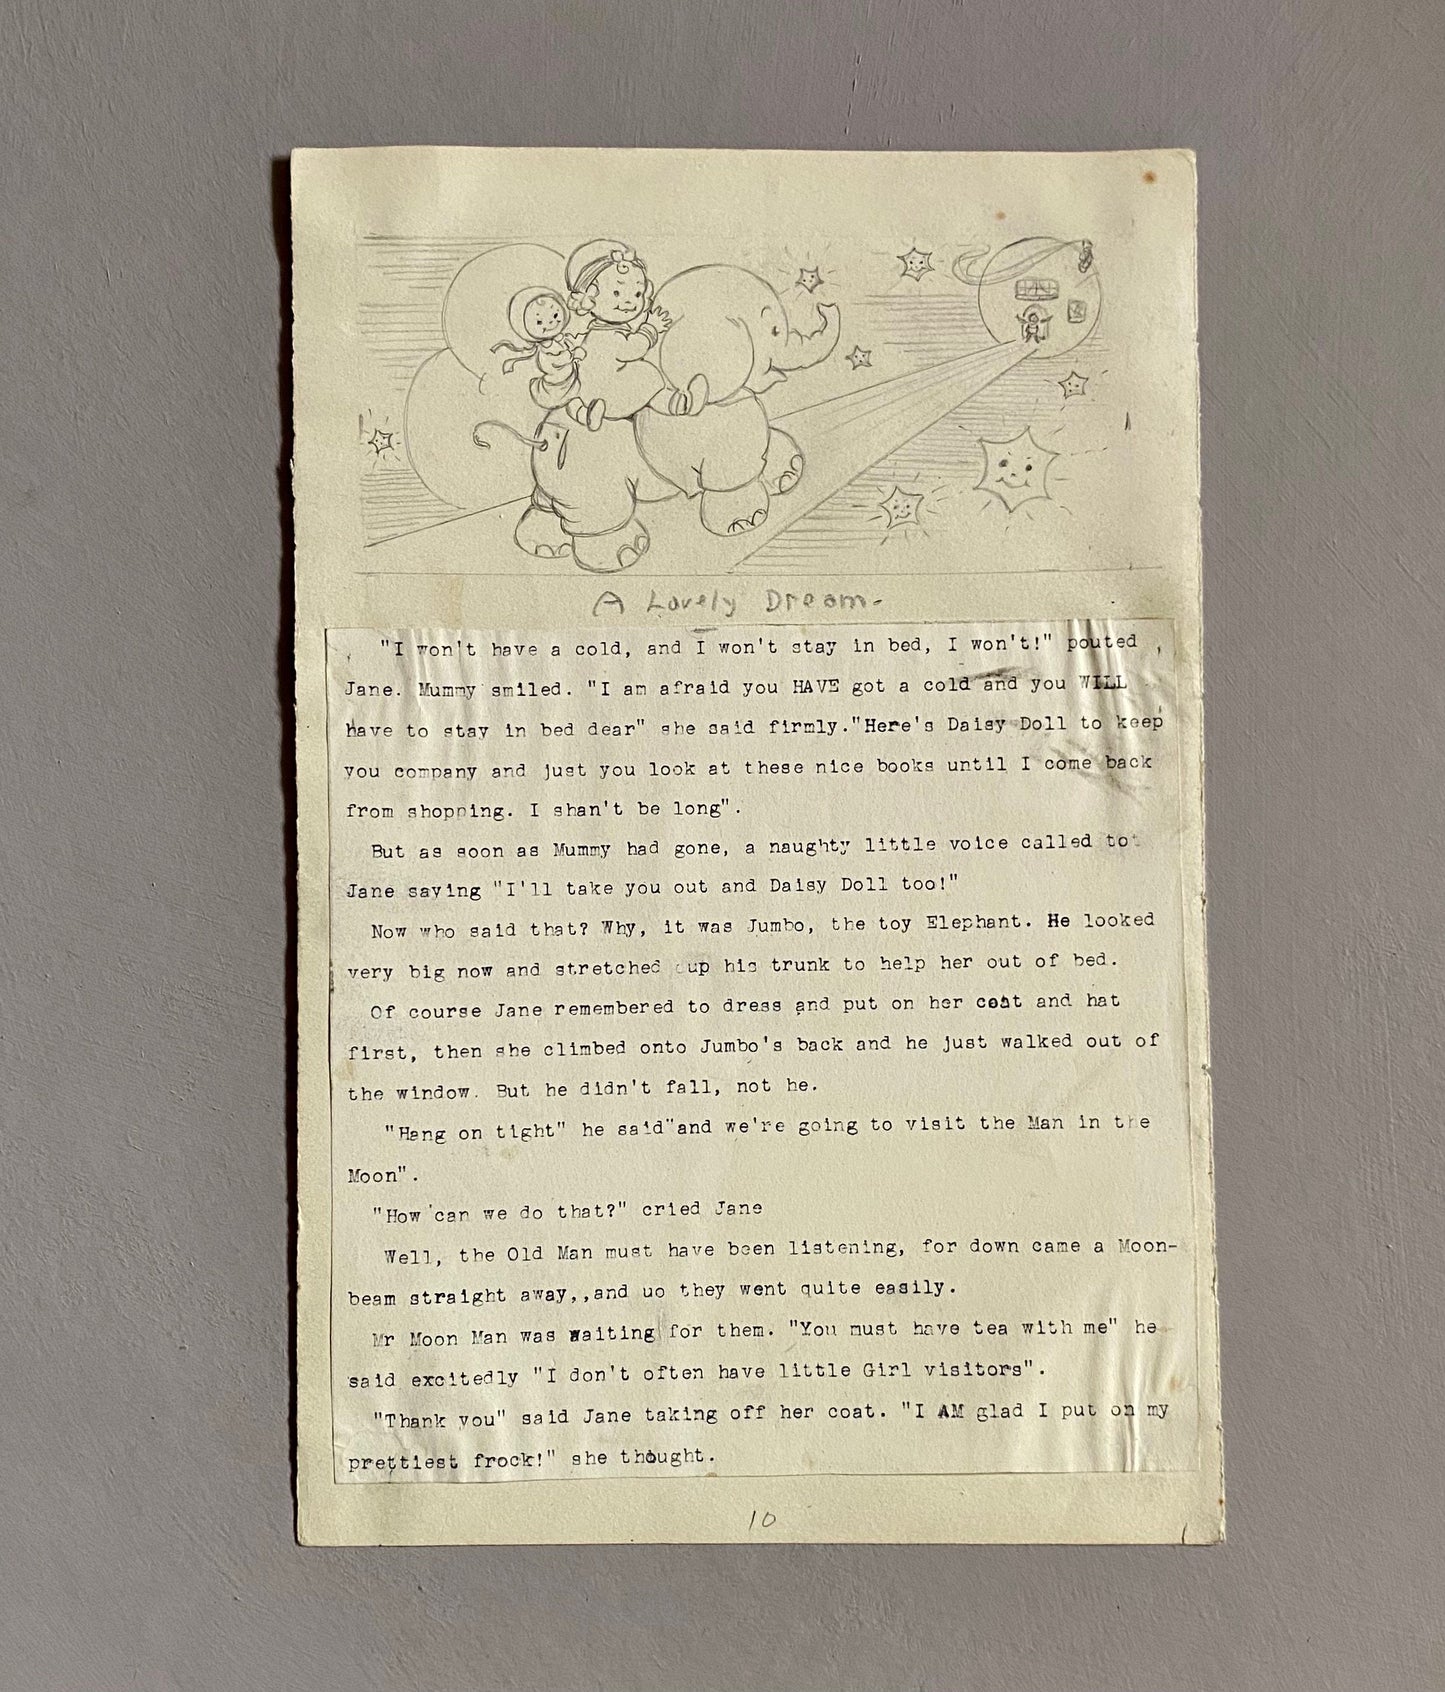 A Lovely Dream-
"I won't have a cold, and I won't stay in bed, I won't!" pouted
Jane. Mummy smiled. "I am afraid you HAVE got a cold and you WILL
have to stay in bed dear" she said firmly."Here's Daisy Doll to keep
you company and just you look at these nice books until I come back
from shopping. I shan't be long".
But as soon as Mummy had gone, a naughty little voice called to
Jane saying "I'll take you out and Daisy Doll too!"
Now who said that? Why, it was Jumbo, the toy Elephant. He looked
very big now and stretched up his trunk to help her out of bed.
Of course Jane remembered to dress and put on her coat and hat
first, then she climbed onto Jumbo's back and he just walked out of
the window. But he didn't fall, not he.
"Hang on tight" he said"and we're going to visit the Man in the
Moon".
"How can we do that?" cried Jane
Well, the Old Man must have been listening, for down came a Moon-
beam straight away,,and uo they went quite easily.
Mr Moon Man was waiting for them. "You must have tea with me" he
said excitedly "I don't often have little Girl visitors".
"Thank you" said Jane taking off her coat. "I AM glad I put on my
prettiest frock!" she thought.
10